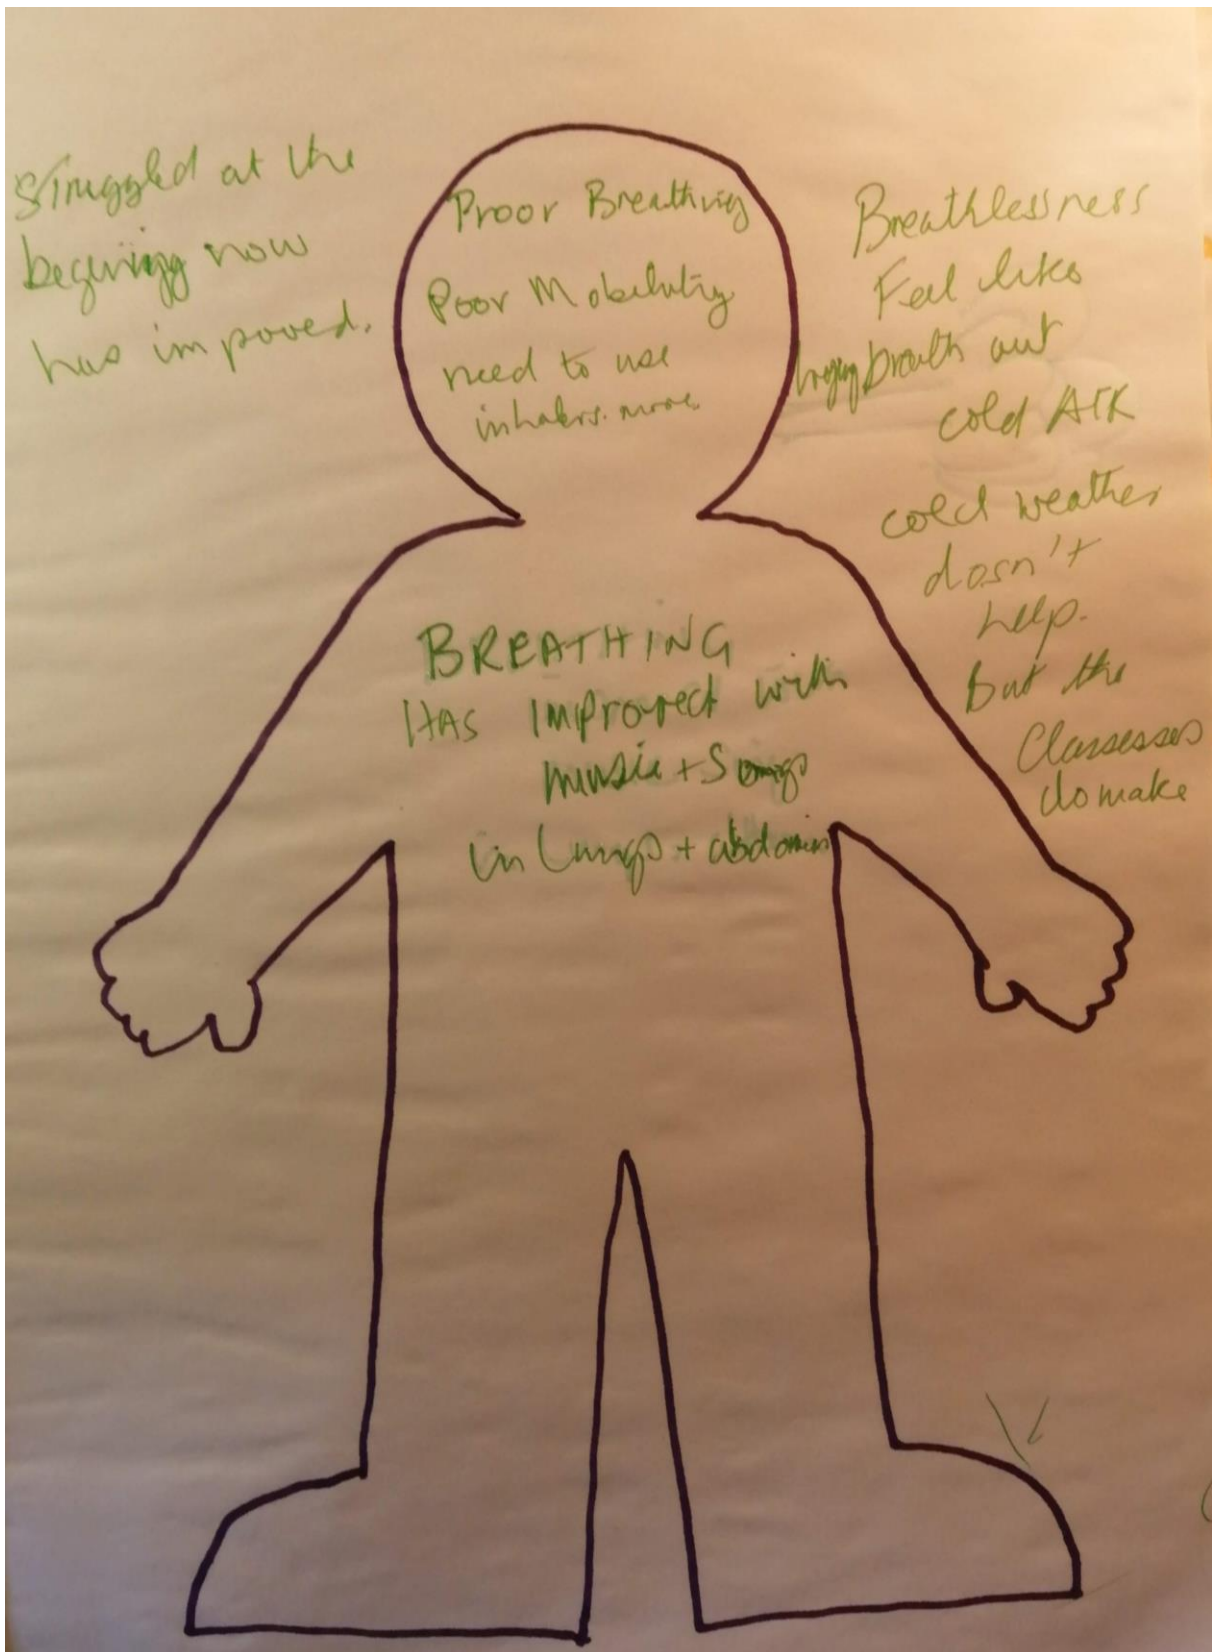 Struggled at the
begining now
has impoved.
Proor Breathing
Poor Mobility
need to use
inhalers. more.
Breathlessness
Feel like
breath out
cold AIR
cold weather
dosn't
help.
But the
Classesses
do make
BREATHING
HAS IMProved with
music + Songs
in Lungs + abdomin